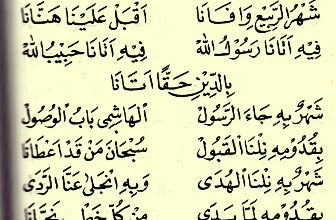 شَهْرُ الرَّبِيْعِ وَافَانَا اَقْبَلْ عَلَيْنَا هَنَّانَا
فِيْهِ اَتَانَا رَسُوْلُ اللهْ فِيْهِ اَتَانَا حَبِيْبُ اللهْ
بِالدِّيْنِ حَقًّا اَتَانَا
شَهْرٌ بِهِ جَاءَ الرَّسُوْلْ اَلْهَاشِمِى بَابُ الْوُصُوْلْ
بِقُدُوْمِهِ نِلْنَا الْقَبُوْلْ سُبْحَانَ مَنْ قَدْ اَعْطَانَا
شَهْرٌ بِهِ نِلْنَا الْهُدَى وَبِهِ انْجَلَى عَنَّا الرَّدَى
بِقُدُوْمِهِ لَمَّا بَدَى مِنْ كُلِّ نَجَّانَا